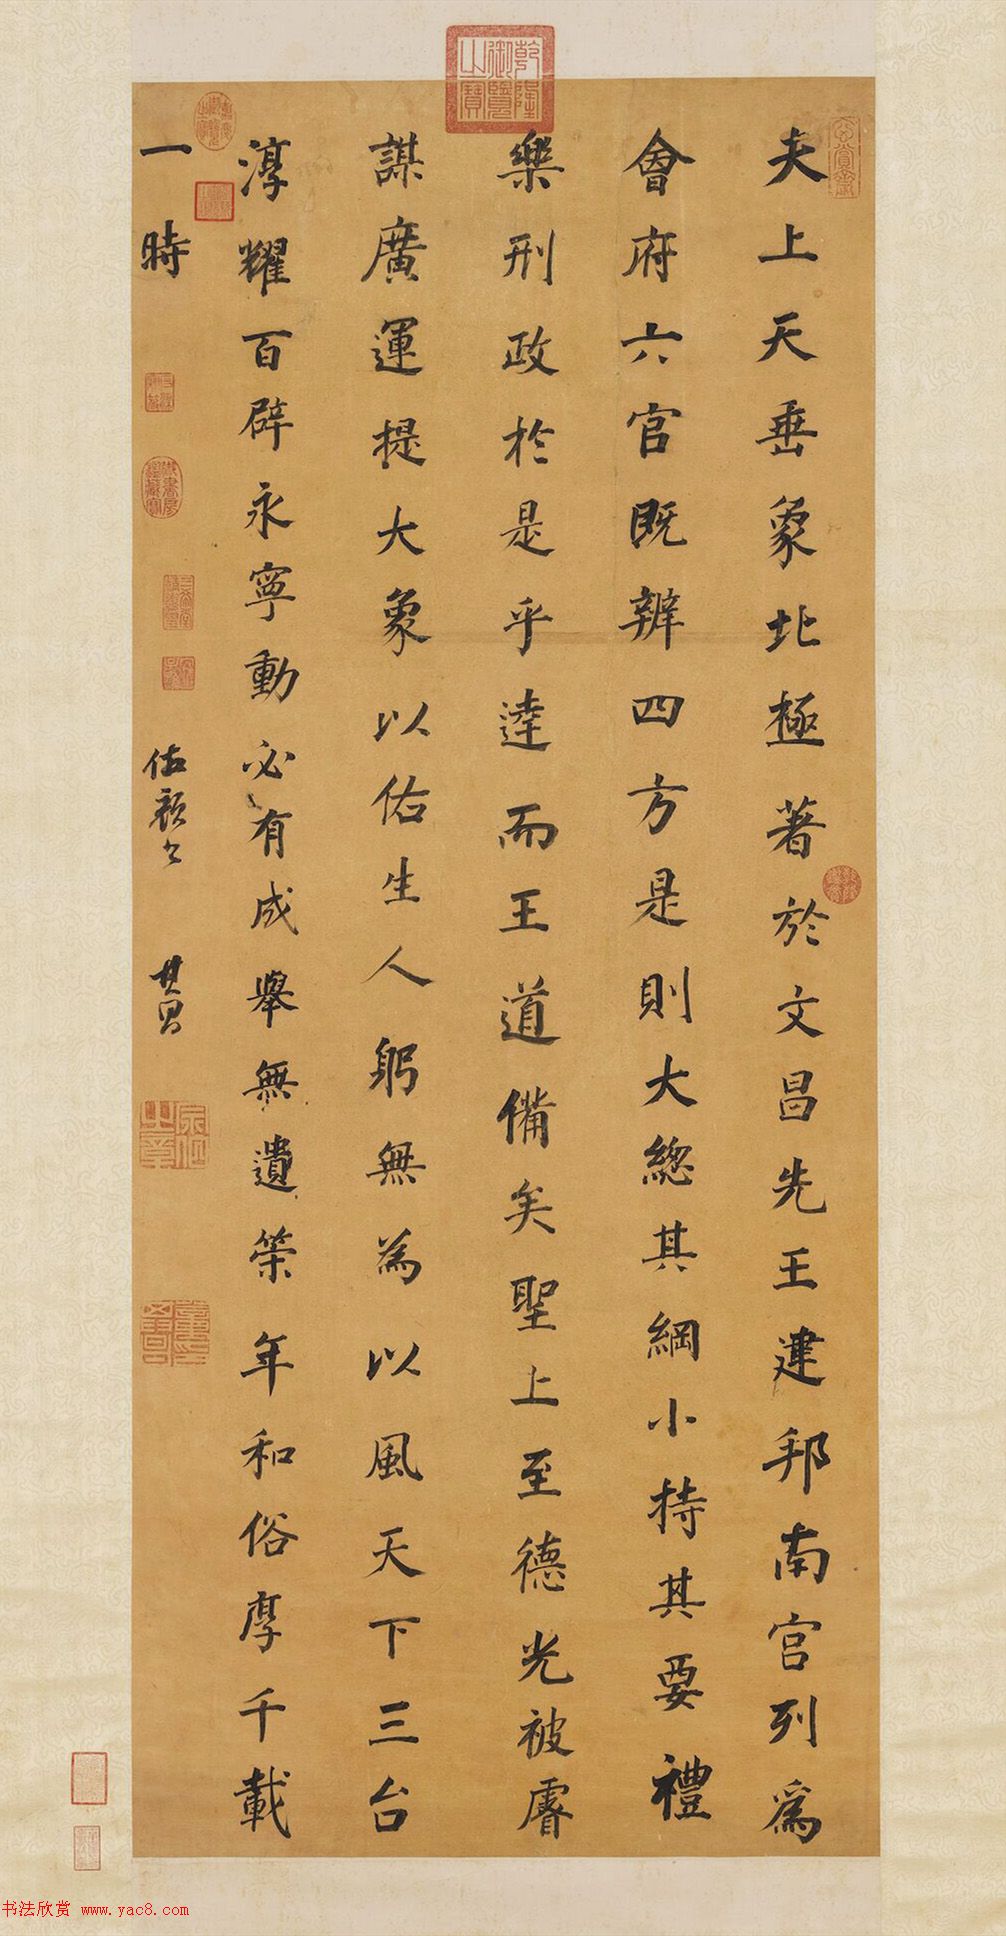 夫上天垂象北極著於文昌先王建邦南宮列爲
會府六官既辨四方是則大總其綱小持其要禮
樂刑政於是乎達而王道備矣聖上至德光被睿
謀廣運提大象以佑生人躬無為以風天下三台
淳耀百辟永寧動必有成舉無遺策年和俗厚千載
一時
其昌
乾隆御覽之寶
书法欣赏 www.yac8.com